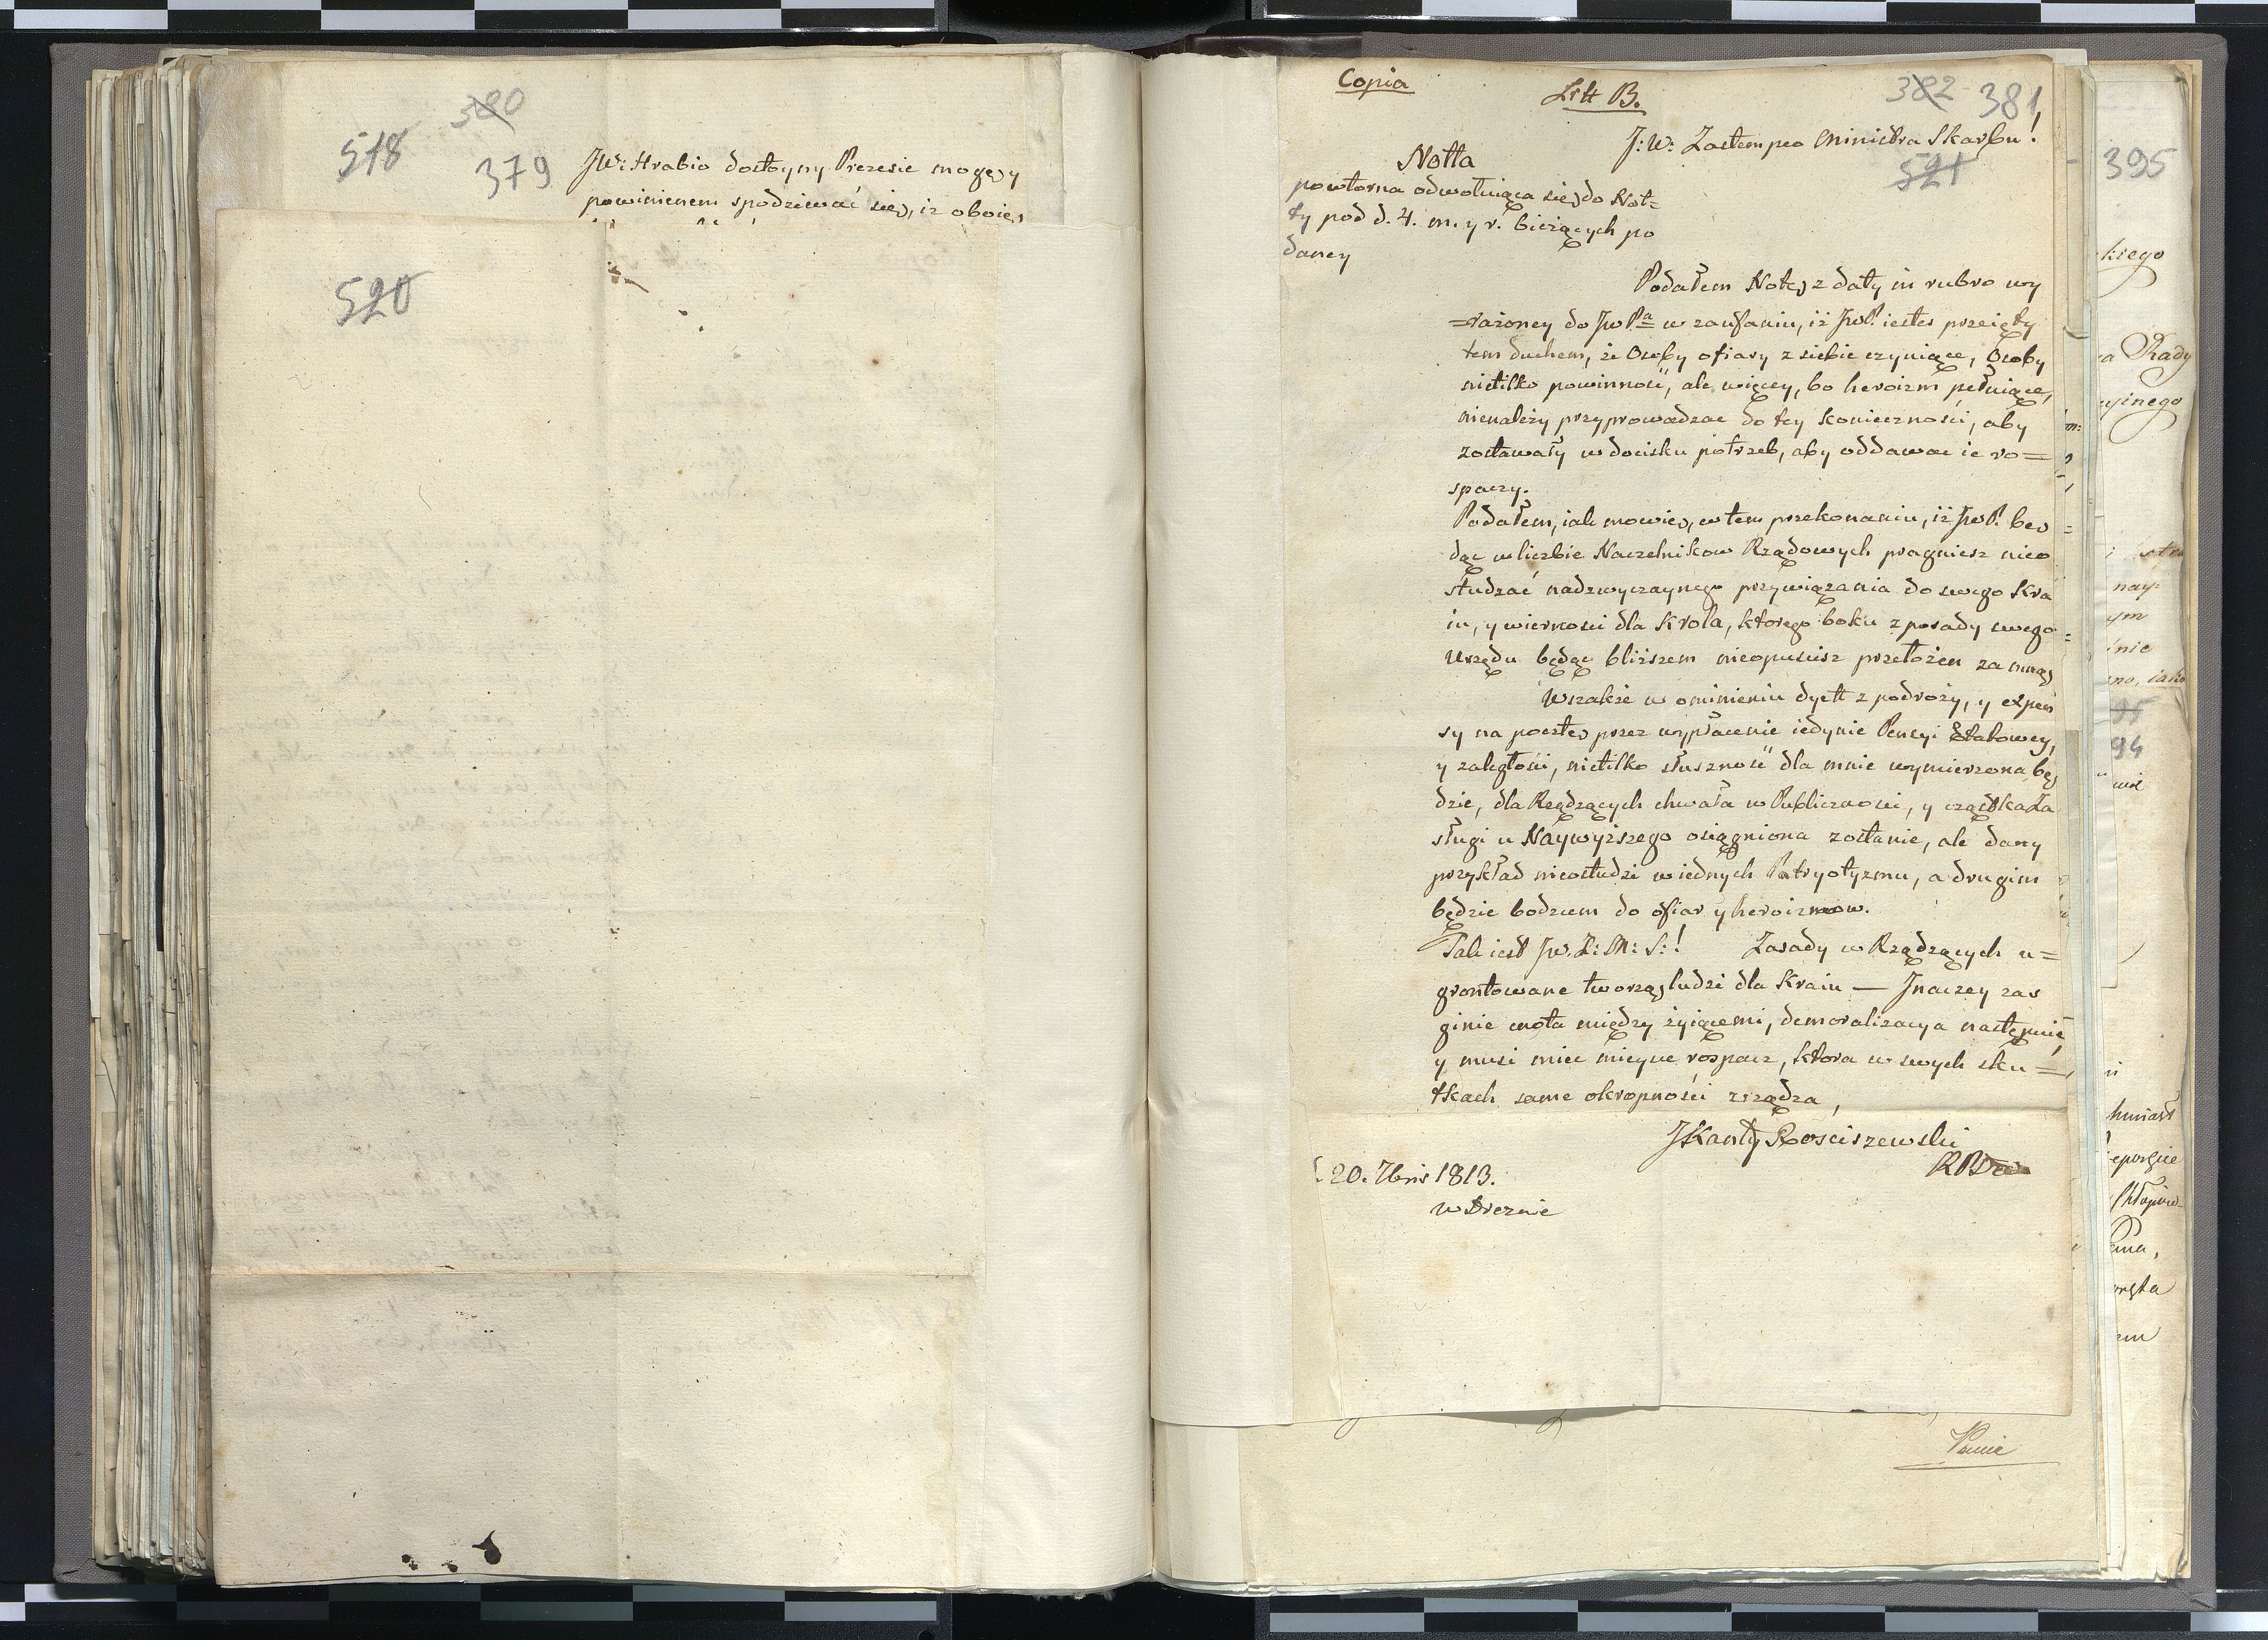 380
518
379
JW: Hrabio dostoyny Prezesie mogę y
powinienem spodziewać się, iż oboię,
520
Copia
Litt B.
382 381
J: W: Zastempco Ministra Skarbu!
521
Notta
powtorna odwołuiąca się do Not=
ty pod d. 4. m. y r. bieżących po
daney
Podałem Notę z daty in rubro wy
=rażoney do JwPa w zaufaniu, iż JwP. iestes przeięty
tem duchem, że Osoby ofiary z siebie czyniące, Osoby
nietilko powinność, ale więcey, bo heroizm pełniące,
nienależy przyprowadzac do tey konieczności, aby
zostawały w docisku potrzeb, aby oddawac ie ro=
spaczy.
Podałem, iak mowię, w tem przekonaniu, iż JwP. bę
dąc w liczbie Naczelnikow Rządowych pragniesz nieo
studzać nadzwyczaynego przywiązania do swego Kra
iu, y wiernosci dla Krola, ktorego boku z posady swego
Urzędu będąc bliższem nieopuścisz przełożen za mną,
Wszakże w ominieniu dyett z podroży, y expen
sy na pocztę przez wypłacenie iedynie Pensyi Etatowey,
y zaległości, nietilko słuszność dla mnie wymierzona bę
dzie, dla Rządzących chwała w Publiczności, y cząstka Za
sługi u Naywyższego osiągniona zostanie, ale dany
przykład nieostudzi w iednych Patryotyzmu, a drugim
będzie bodzcem do ofiar y heroizmow.
Tak iest Jw. Z: M: S:! Zasady w Rządzących u=
grontowane tworzą ludzi dla Kraiu — Jnaczey zas
ginie cnota między żyiącemi, demoralizacya nastąpnie,
y musi miec mieysce rospacz, ktora w swych sku=
tkach same okropności zrządza,
JKanty Rosciszewski
20. 7bris 1813.
w Dreznie
Panie
395
kiego
Rady
yinego
nay
ym
94